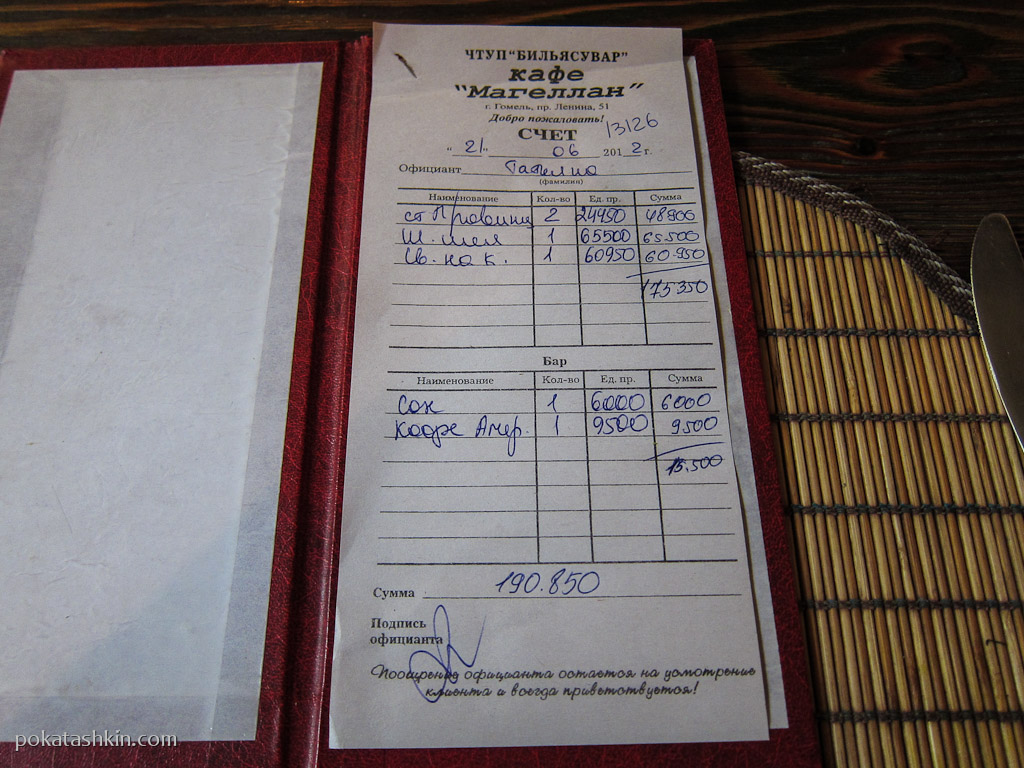 ЧТУП "БИЛЬЯСУВАР"
кафе
"Магеллан"
г. Гомель, пр. Ленина, 51
Добро пожаловать!
СЧЕТ 13126
"21" 06 2012 г.
Официант
(фамилия)
Наименование Кол-во Ед. пр. Сумма
ст 2 24450 48900
Ш. шея 1 65500 65.500
Св. на к. 1 60950 60.950
175350
Бар
Наименование Кол-во Ед. пр. Сумма
Сок 1 6000 6000
Кофе Амер. 1 9500 9500
15.500
Сумма 190.850
Подпись
официанта
Поощрение официанта остается на усмотрение
клиента и всегда приветствуется!
pokatashkin.com